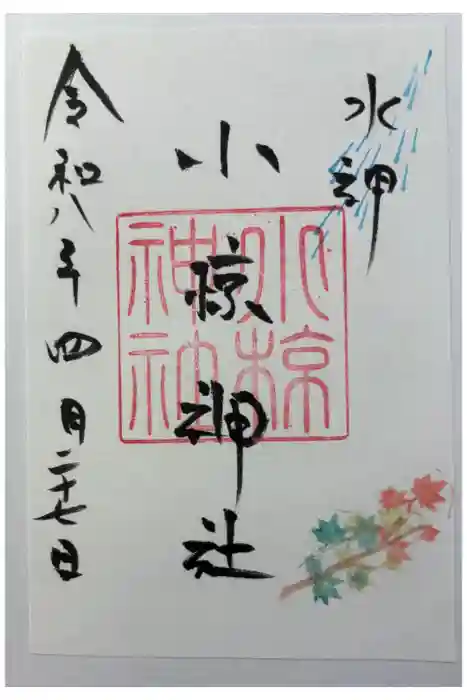 水神
小椋神社
小椋
神社
令和八年四月二十七日